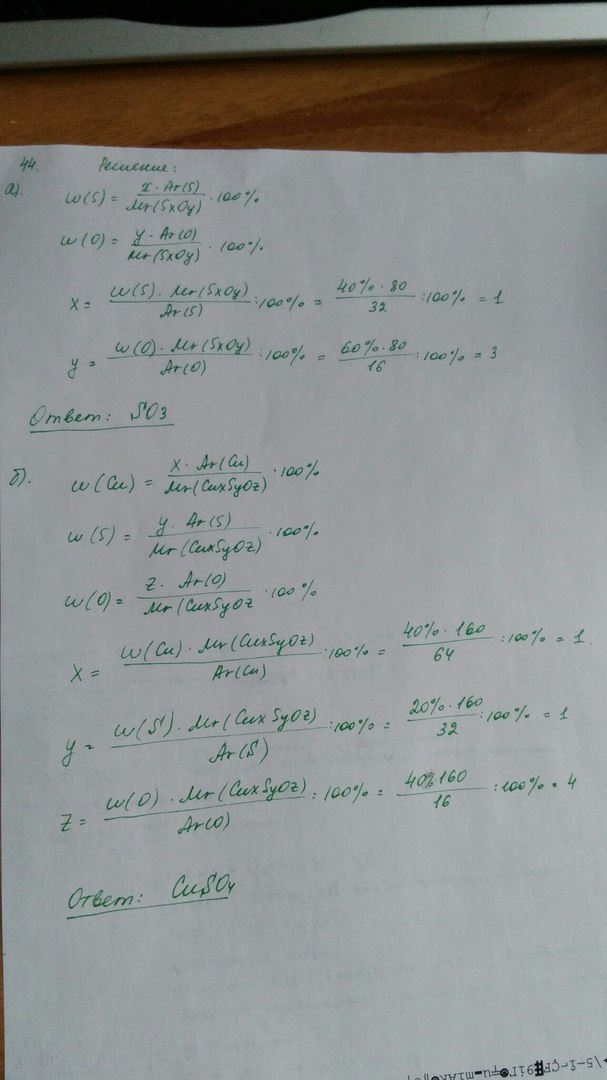 44. Решение:
а). w(S) = x · Ar(S) / Mr(SxOy) · 100%
w(O) = y · Ar(O) / Mr(SxOy) · 100%
x = w(S) · Mr(SxOy) / Ar(S) : 100% = 40% · 80 / 32 : 100% = 1
y = w(O) · Mr(SxOy) / Ar(O) : 100% = 60% · 80 / 16 : 100% = 3
Ответ: SO3
б). w(Cu) = x · Ar(Cu) / Mr(CuxSyOz) · 100%
w(S) = y · Ar(S) / Mr(CuxSyOz) · 100%
w(O) = z · Ar(O) / Mr(CuxSyOz · 100%
x = w(Cu) · Mr(CuxSyOz) / Ar(Cu) : 100% = 40% · 160 / 64 : 100% = 1
y = w(S) · Mr(CuxSyOz) / Ar(S) : 100% = 20% · 160 / 32 : 100% = 1
z = w(O) · Mr(CuxSyOz) / Ar(O) : 100% = 40% 160 / 16 : 100% = 4
Ответ: CuSO4